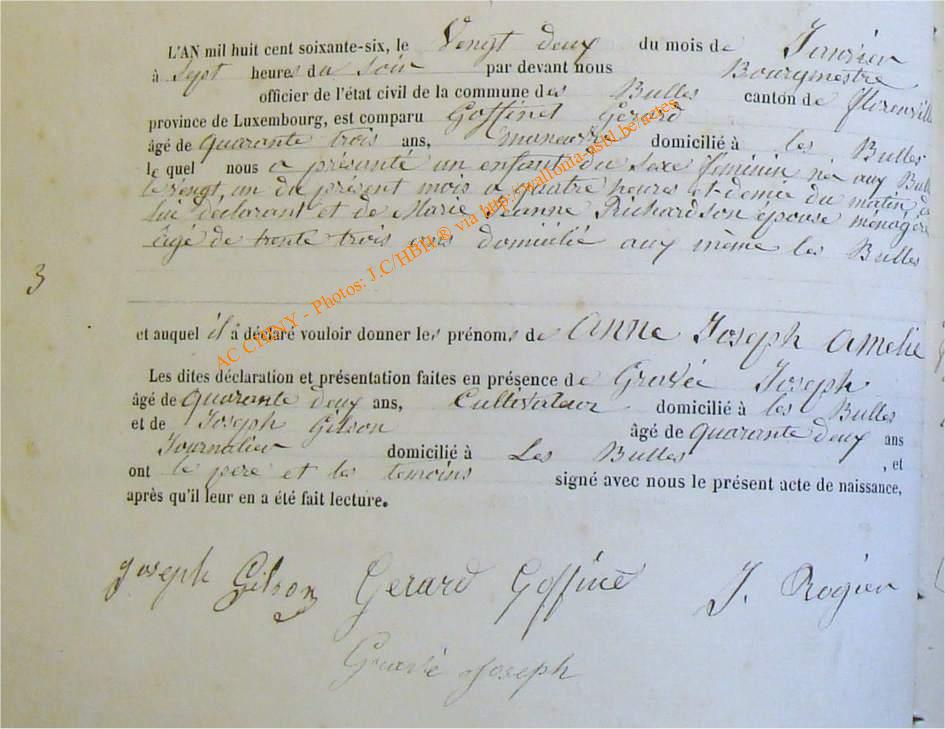 L'AN mil huit cent soixante-six, le Vengt deux du mois de Janvier
à Sept heures du Soir par devant nous Bourgmestre
officier de l'état civil de la commune des Bulles canton de florenville
province de Luxembourg, est comparu Goffinet Gérard
âgé de quarante trois ans, domicilié à les Bulles
le quel nous a présanté un enfant du Sexe féminin né aux Bulles
le vengt un du présent mois a quatre heures et demie du matin de
lui déclarant et de Marie Jeanne Richardson épouse ménagère
âgé de trente trois ans domicilié aux même les Bulles
3
et auquel il a déclaré vouloir donner les prénoms de Anne Joseph Amélie
Les dites déclaration et présentation faites en présence de Gravée Joseph
âgé de quarante deux ans, Cultivateur domicilié à les Bulles
et de Joseph Gilson âgé de quarante deux ans
Journalier domicilié à Les Bulles, et
ont le père et les temoins signé avec nous le présent acte de naissance,
après qu'il leur en a été fait lecture.
Joseph Gilson Gerard Goffine J. Rogier
Gravé Joseph
AC CHINY - Photos: J.C/HBH® via http://wallonia-asbl.be/actes